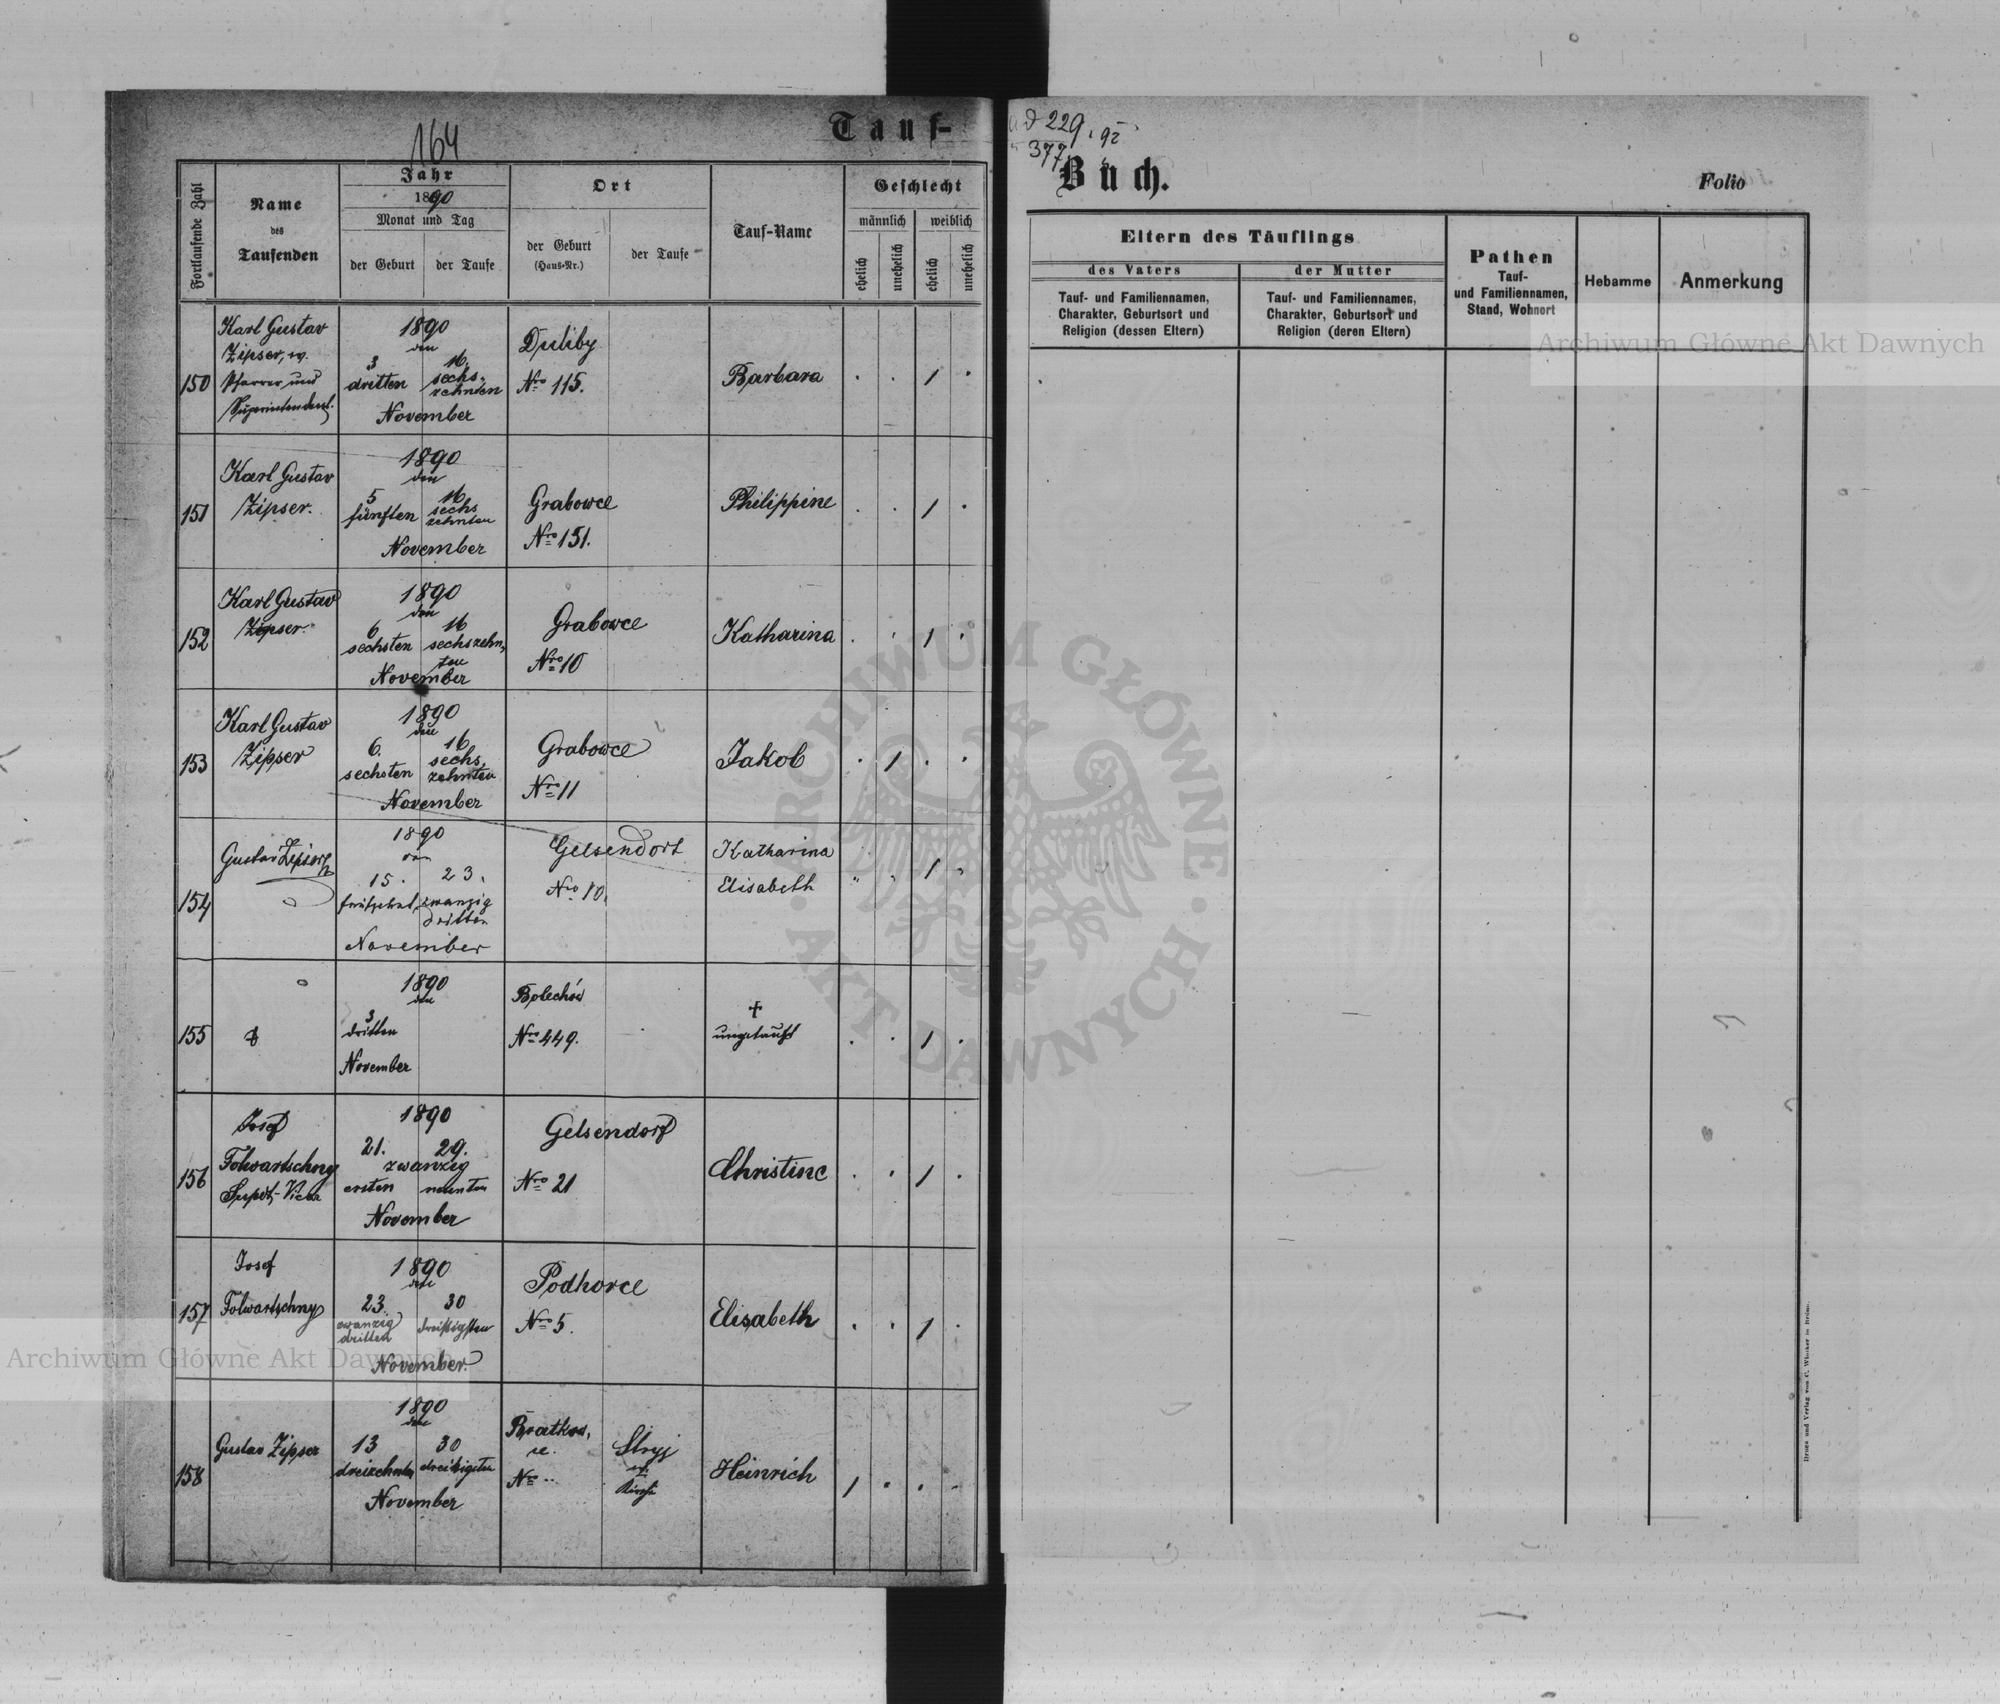 164
Tauf-
Fortlaufende Zahl
Name
des
Taufenden
Jahr
1890
Monat und Tag
der Geburt
der Taufe
Ort
der Geburt
(Haus-Nr.)
der Taufe
Tauf-Name
Geschlecht
männlich
weiblich
ehelich
unehelich
ehelich
unehelich
150
Karl Gustav
Zipser, ev.
Pfarrer und
Superintendent.
1890
den
3 16.
dritten sechs-
zehnten
November
Duliby
Nro 115.
Barbara
. . 1 .
151
Karl Gustav
Zipser.
1890
den
5 16
fünften sechs
zehnten
November
Grabowce
Nro 151.
Philippine
. . 1 .
152
Karl Gustav
Zipser.
1890
den
6 16
sechsten sechszehn-
ten
November
Grabowce
Nro 10
Katharina
. . 1 .
153
Karl Gustav
Zipser
1890
den
6. 16
sechsten sechs-
zehnten
November
Grabowce
Nro 11
Jakob
. 1 . .
154
Gustav Zipser
1890
den
15. 23.
zwanzig
dritten
November
Gelsendorf
Nro 10.
Katharina
Elisabeth
1
155
1890
den
3
dritten
November
Bolechów
Nro 449.
+
ungetauft
. . 1 .
156
Josef
Folwartschny
Supdt.-Vicar
1890
21. 29.
zwanzig
ersten neunten
November
Gelsendorf
Nro 21
Christine
. . 1 .
157
Josef
Folwartschny
1890
den
23. 30
zwanzig
dritten dreissigsten
November.
Podhorce
Nro 5.
Elisabeth
. . 1 .
158
Gustav Zipser
1890
den
13 30
dreizehnten dreissigsten
November
Bratkow-
ce.
Nro ..
Stryj
ev.
Kirche
Heinrich
1 . . .
ad 229, 92
377
Buch.
Folio
Eltern des Täuflings
des Vaters
Tauf- und Familiennamen,
Charakter, Geburtsort und
Religion (dessen Eltern)
der Mutter
Tauf- und Familiennamen,
Charakter, Geburtsort und
Religion (deren Eltern)
Pathen
Tauf-
und Familiennamen,
Stand, Wohnort
Hebamme
Anmerkung
Archiwum Główne Akt Dawnych
ARCHIWUM GŁÓWNE
AKT DAWNYCH
Archiwum Główne Akt Dawnych